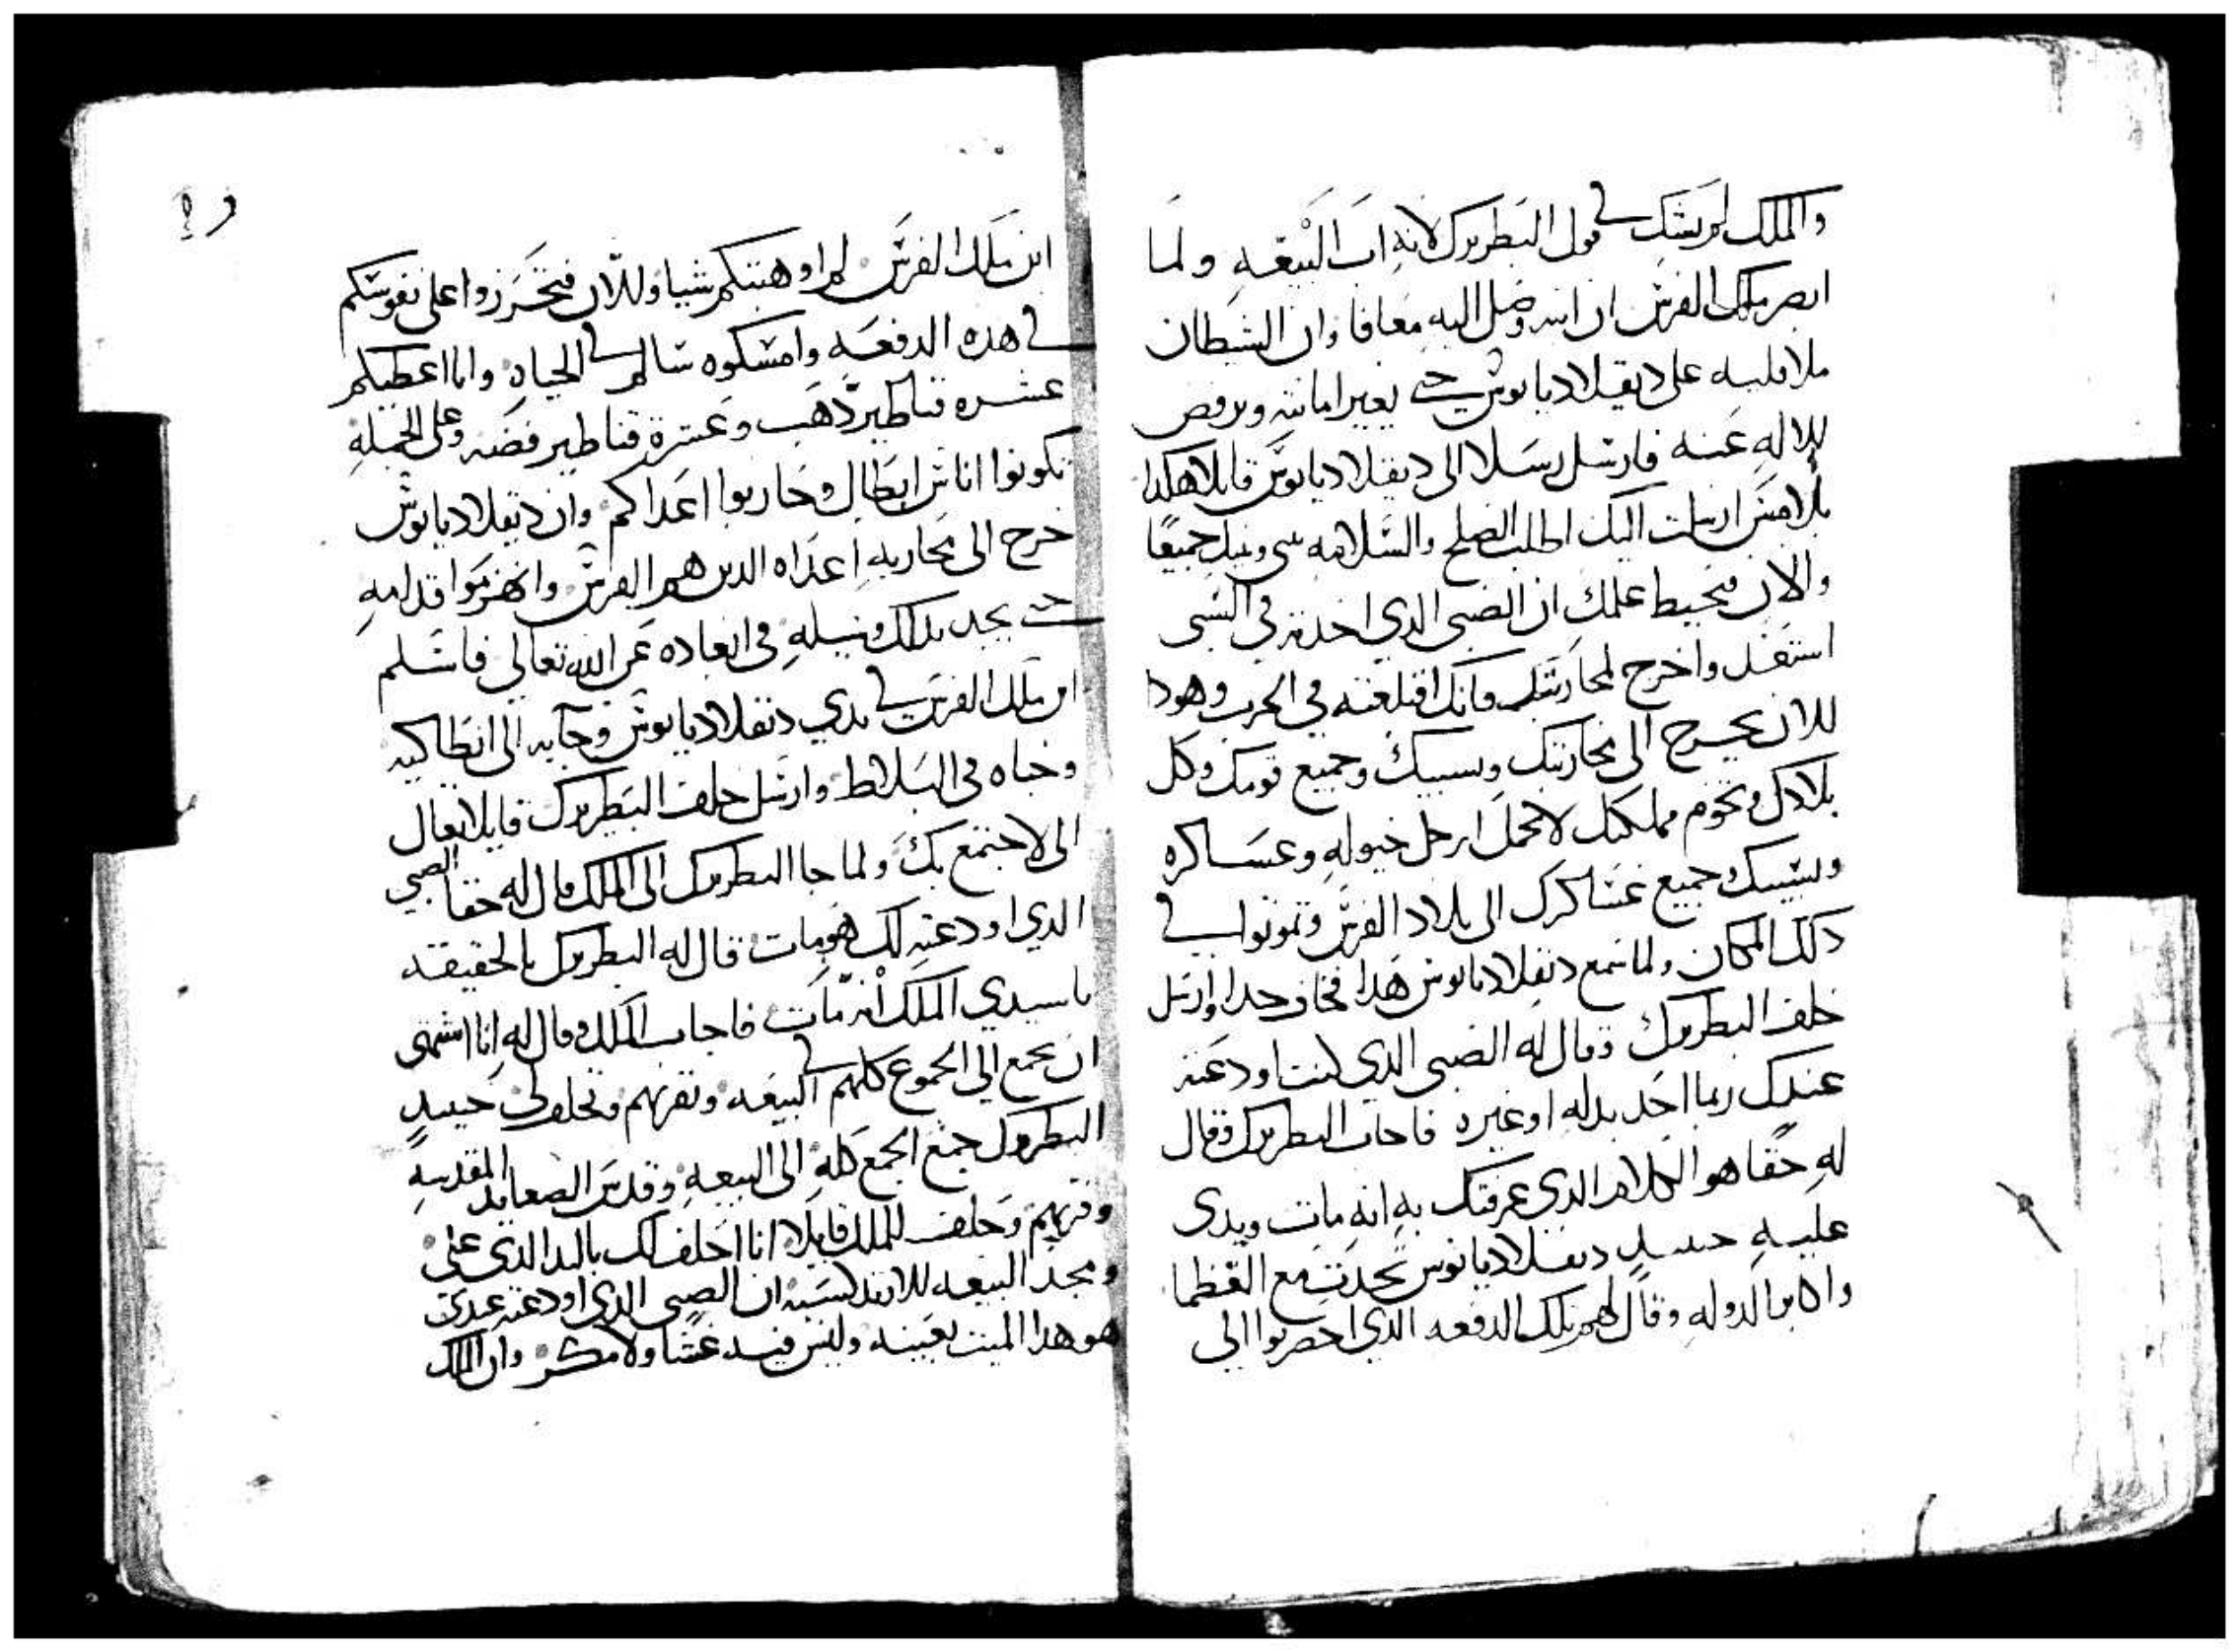 والملك لم يشك في قول البطريرك لانه اب البيعه ولما
ابصر ملك الفرس ان ابنه وصل اليه معافا وان الشيطان
ملا قلبه على ديقلاديانوس حتي يغير امانته ويرفض
للاله عنه فارسل رسلا الى ديقلاديانوس قايلا هكدا
بلامس ارسلت اليك اطلب الصلح والسلامه بيني وبينك جميعا
والان فيحيط علمك ان الصبي الدي اخدته في السبى
استغفل واخرج لمحاربتك فانك اقتلعته في الحرب وهودا
للان يخرج الى محاربتك ويسبيك وجميع قومك وكل
بلادك وتخوم مملكتك لاجمل ارجل خيوله وعساكره
ويسبيك وجميع عساكرك الى بلاد الفرس وتموتوا في
دلك المكان ولما سمع دقلاديانوس هدا فخاف جدا وارسل
خلف البطريرك وقال له الصبي الدي كنت اودعته
عندك ربما اخد بدله او غيره فاجاب البطريرك وقال
له حقا هو الكلام الدي عرفتك به انه مات ويدى
عليه حينيد ديقلاديانوس تحدت مع العظما
واكابر الدوله وقال لهم تلك الدفعه الدي احضرتوا الي
ابن ملك الفرس لم اوهبتكم شيا وللان فتحرزوا على نفوسكم
في هده الدفعه وامسكوه سالم في الحياه وانا اعطيكم
عشره قناطير دهب وعشرة قناطير فضه وعلى الجمله
تكونوا اناس ابطال وحاربوا اعداكم وان ديقلاديانوس
خرج الى محاربه اعداه الدين هم الفرس وانهزموا قدامه
حتي يجد بدلك وسيله في ابعاده عن الله تعالي فاسلم
ابن ملك الفرس في يدي دقلاديانوس وجابه الى انطاكيه
وخباه في البلاط وارسل خلف البطريرك قايلا تعال
الى لاجتمع بك ولما جا البطريرك الى الملك قال له حقا الصبي
الدي اودعته لك هو مات قال له البطريرك بالحقيقه
يا سيدي الملك انه مات فاجاب الملك وقال له انا اشتهى
ان تجمع الي الجموع كلهم في البيعه وتقربهم وتحلف لي حينيد
البطريرك جمع الجمع كله الى البيعه وقدس الصعايد المقدسه
وقربهم وحلف للملك قايلا انا احلف لك بالدا الدي علي
ومجد البيعه للاتدكسيه ان الصبي الدي اودعته عندي
هو هدا الميت بعينه وليس فيه غشا ولا مكر وان الملك